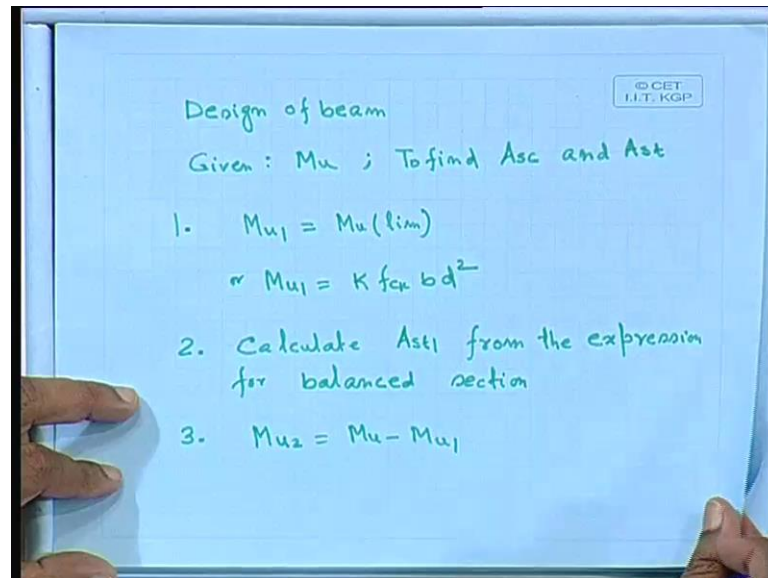 © CET
I.I.T. KGP
Design of beam
Given : Mu ; To find Asc and Ast
1. Mu1 = Mu (lim)
or Mu1 = K fck bd²
2. Calculate Ast1 from the expression
for balanced section
3. Mu2 = Mu - Mu1